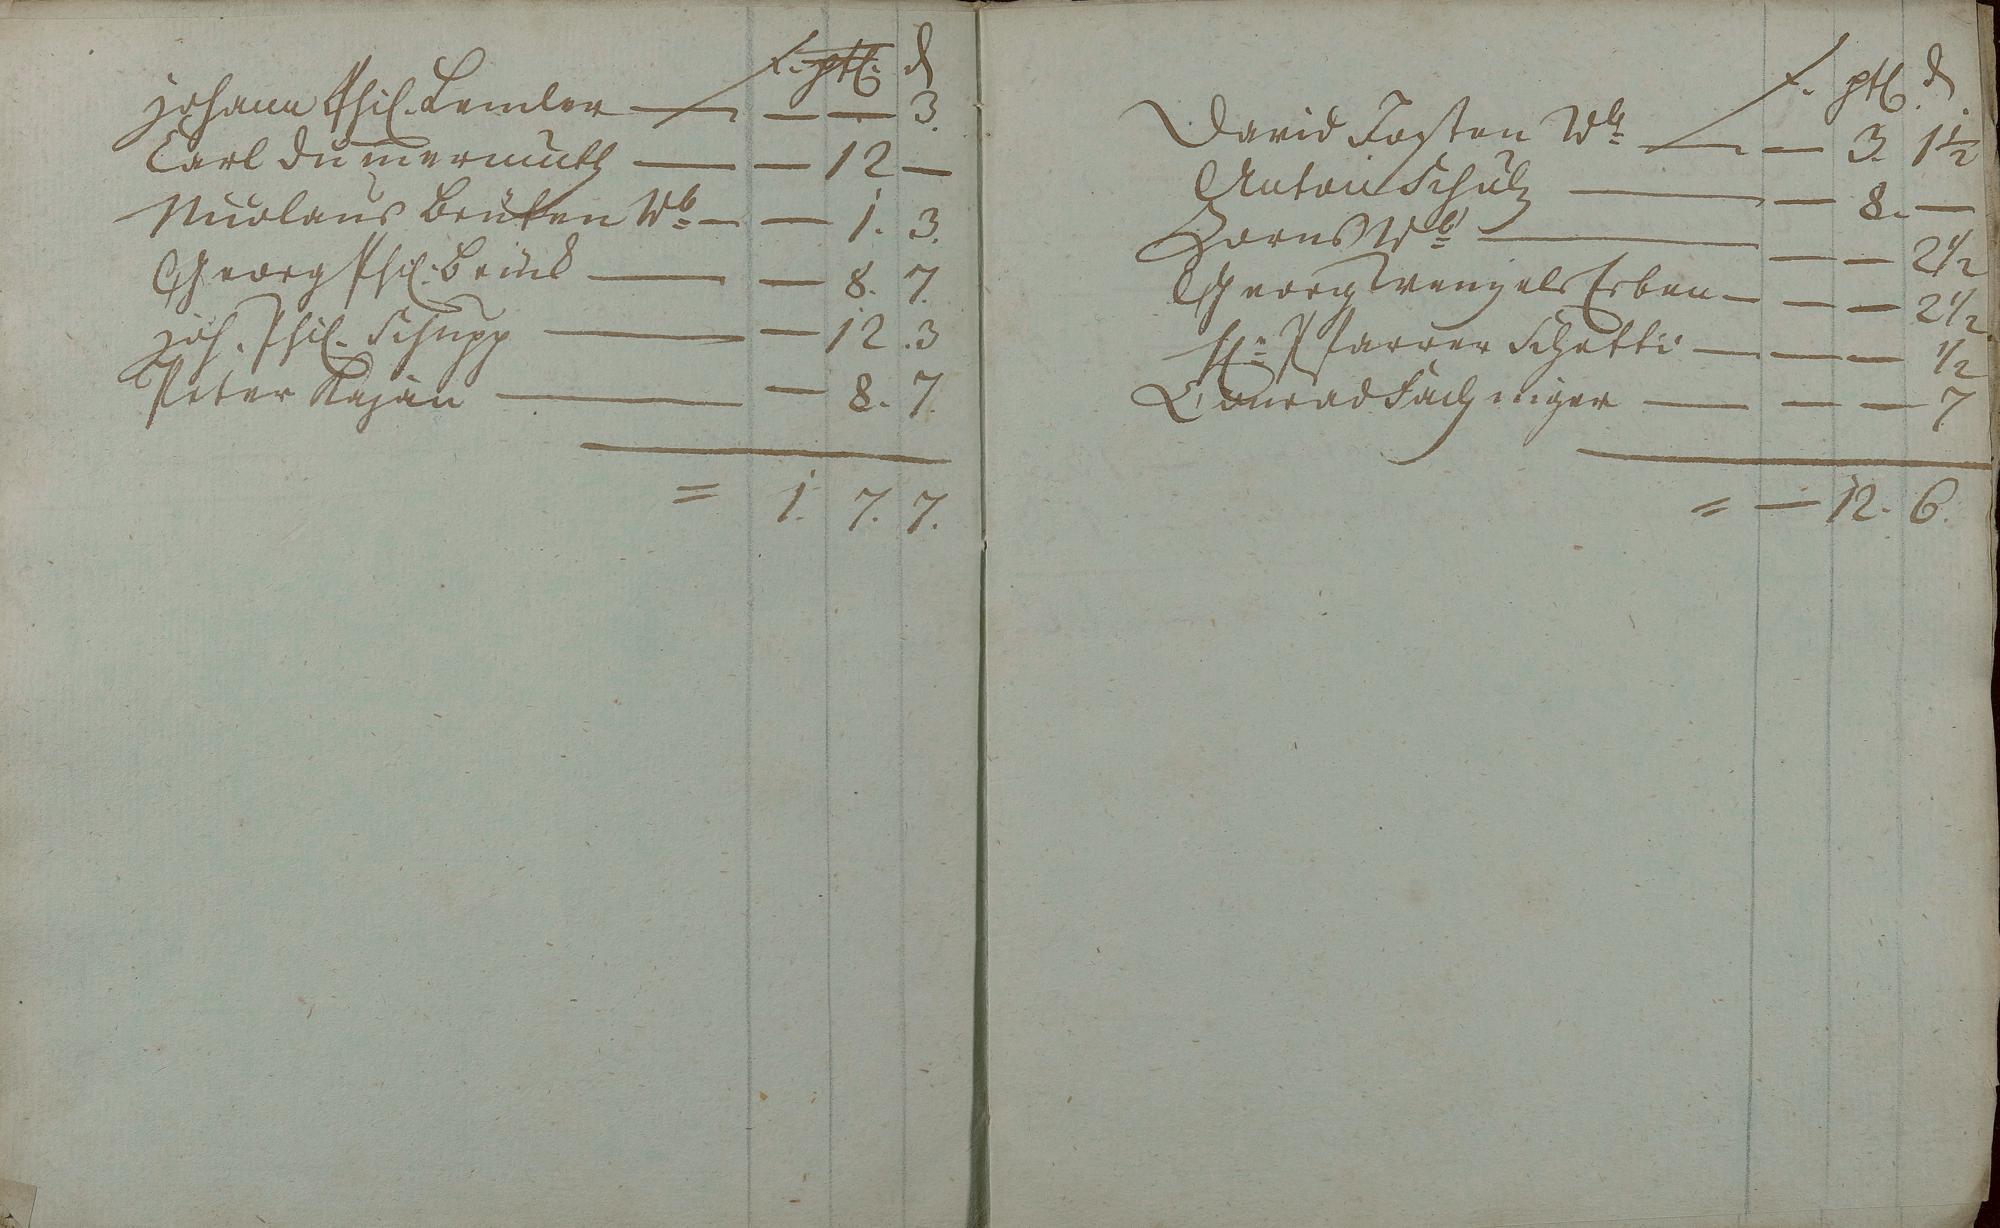 f. ptl. d
Johann Phil. Lemler — — — 3.
Carl Dummermuth — — 12 —
Nicolaus Brüken Wb — — 1. 3.
Georg Phil. Brück — — 8. 7.
Joh. Phil. Schupp — — 12. 3
Peter Kajan — — 8. 7.
= 1. 7. 7.
f. ptl. d.
David Fasten Wb — — 3. 1 1/2
Anton Schulz — — 8. —
Zorns Wb — — — 2 1/2
Georg Wenzels Erben — — — 2 1/2
H. Pfarrer Schotti — — — 1/2
Conrad Fachinger — — — 7
= — 12. 6.